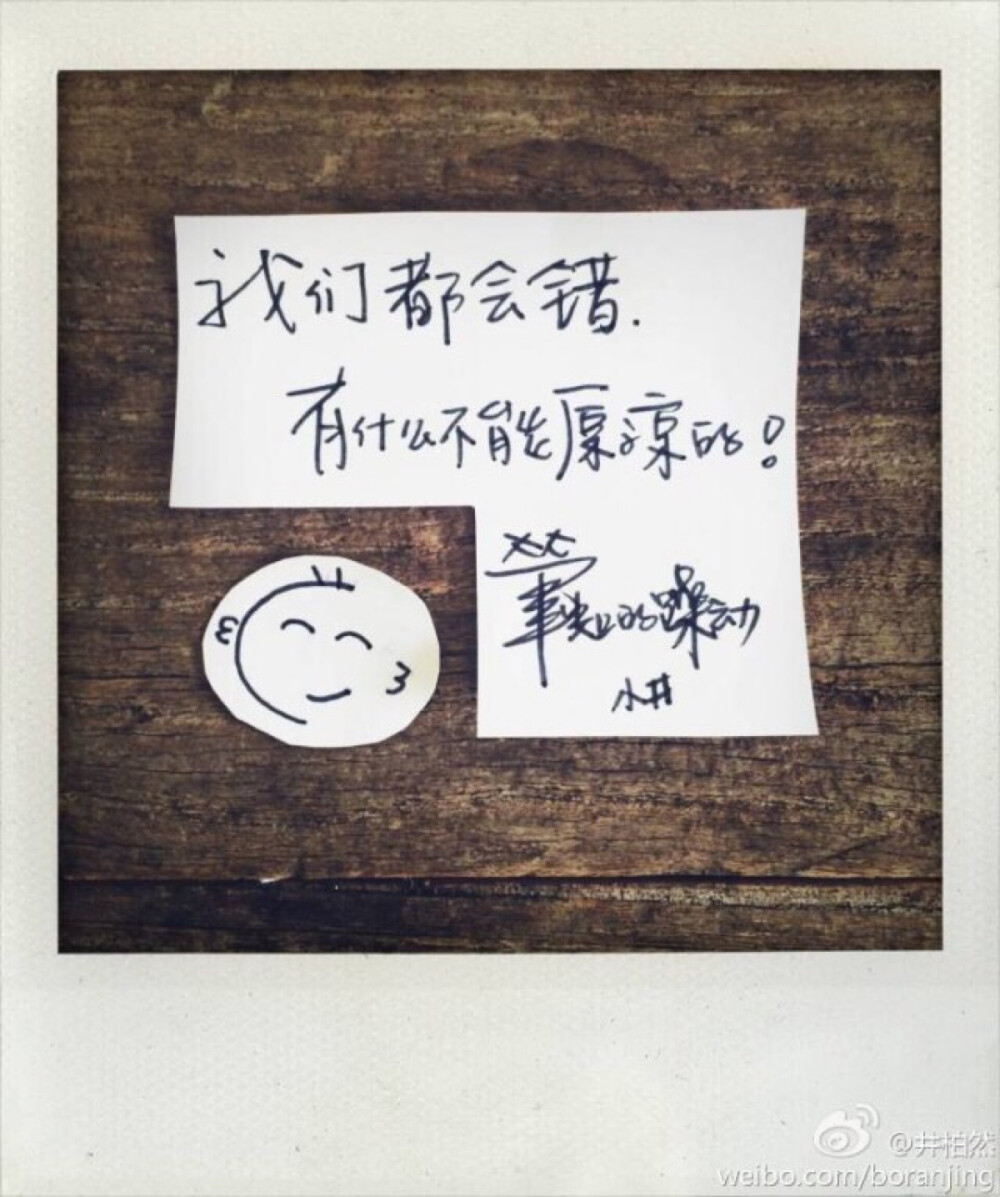 我们都会错.
有什么不能原谅的！
筆尖上的躁动
小井
@井柏然
weibo.com/boranjing